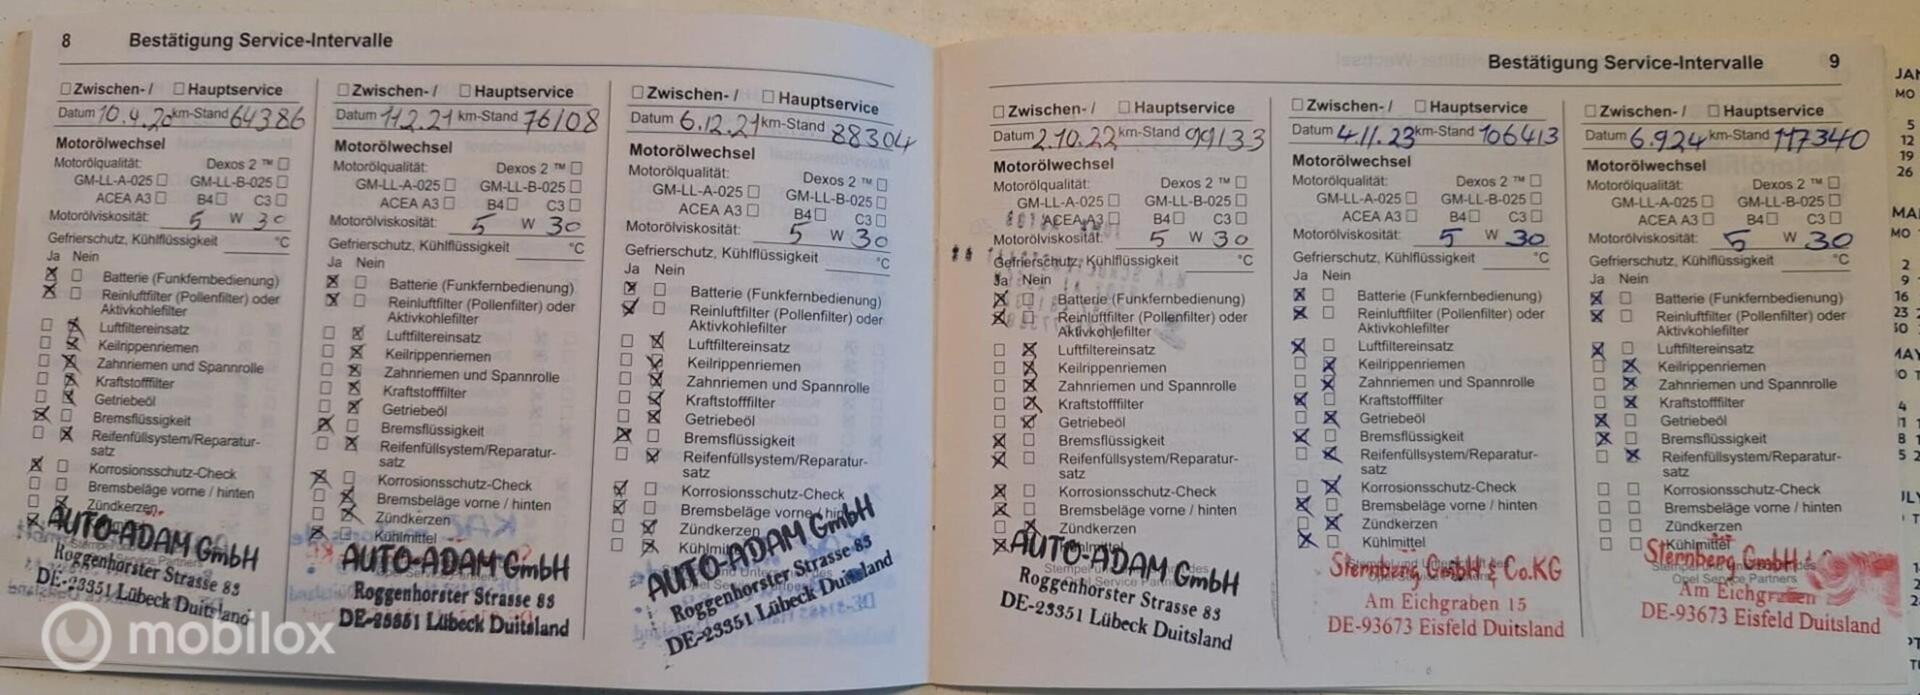 8 Bestätigung Service-Intervalle
Zwischen- / Hauptservice
Datum 10.4.20 km-Stand 64386
Motorölwechsel
Motorölqualität: Dexos 2 ™
GM-LL-A-025 GM-LL-B-025
ACEA A3 B4 C3
Motorölviskosität: 5 W 30
Gefrierschutz, Kühlflüssigkeit °C
Ja Nein
Batterie (Funkfernbedienung)
Reinluftfilter (Pollenfilter) oder
Aktivkohlefilter
Luftfiltereinsatz
Keilrippenriemen
Zahnriemen und Spannrolle
Kraftstofffilter
Getriebeöl
Bremsflüssigkeit
Reifenfüllsystem/Reparatur-
satz
Korrosionsschutz-Check
Bremsbeläge vorne / hinten
Zündkerzen
AUTO-ADAM GmbH
Roggenhorster Strasse 83
DE-23351 Lübeck Duitsland
Zwischen- / Hauptservice
Datum 11.2.21 km-Stand 76108
Motorölwechsel
Motorölqualität: Dexos 2 ™
GM-LL-A-025 GM-LL-B-025
ACEA A3 B4 C3
Motorölviskosität: 5 W 30
Gefrierschutz, Kühlflüssigkeit °C
Ja Nein
Batterie (Funkfernbedienung)
Reinluftfilter (Pollenfilter) oder
Aktivkohlefilter
Luftfiltereinsatz
Keilrippenriemen
Zahnriemen und Spannrolle
Kraftstofffilter
Getriebeöl
Bremsflüssigkeit
Reifenfüllsystem/Reparatur-
satz
Korrosionsschutz-Check
Bremsbeläge vorne / hinten
Zündkerzen
Kühlmittel
AUTO-ADAM GmbH
Roggenhorster Strasse 83
Lübeck Duitsland
Zwischen- / Hauptservice
Datum 6.12.21 km-Stand 88304
Motorölwechsel
Motorölqualität: Dexos 2 ™
GM-LL-A-025 GM-LL-B-025
ACEA A3 B4 C3
Motorölviskosität: 5 W 30
Gefrierschutz, Kühlflüssigkeit °C
Ja Nein
Batterie (Funkfernbedienung)
Reinluftfilter (Pollenfilter) oder
Aktivkohlefilter
Luftfiltereinsatz
Keilrippenriemen
Zahnriemen und Spannrolle
Kraftstofffilter
Getriebeöl
Bremsflüssigkeit
Reifenfüllsystem/Reparatur-
satz
Korrosionsschutz-Check
Bremsbeläge vorne / hinten
Zündkerzen
Kühlmittel
AUTO-ADAM GmbH
Roggenhorster Strasse 83
DE-23351 Lübeck Duitsland
Bestätigung Service-Intervalle 9
Zwischen- / Hauptservice
Datum 2.10.22 km-Stand 99133
Motorölwechsel
Motorölqualität: Dexos 2 ™
GM-LL-A-025 GM-LL-B-025
ACEA A3 B4 C3
Motorölviskosität: 5 W 30
Gefrierschutz, Kühlflüssigkeit °C
Ja Nein
Batterie (Funkfernbedienung)
Reinluftfilter (Pollenfilter) oder
Aktivkohlefilter
Luftfiltereinsatz
Keilrippenriemen
Zahnriemen und Spannrolle
Kraftstofffilter
Getriebeöl
Bremsflüssigkeit
Reifenfüllsystem/Reparatur-
satz
Korrosionsschutz-Check
Bremsbeläge vorne / hinten
Zündkerzen
AUTO-ADAM GmbH
Roggenhorster Strasse 83
DE-23351 Lübeck Duitsland
Zwischen- / Hauptservice
Datum 4.11.23 km-Stand 106413
Motorölwechsel
Motorölqualität: Dexos 2 ™
GM-LL-A-025 GM-LL-B-025
ACEA A3 B4 C3
Motorölviskosität: 5 W 30
Gefrierschutz, Kühlflüssigkeit °C
Ja Nein
Batterie (Funkfernbedienung)
Reinluftfilter (Pollenfilter) oder
Aktivkohlefilter
Luftfiltereinsatz
Keilrippenriemen
Zahnriemen und Spannrolle
Kraftstofffilter
Getriebeöl
Bremsflüssigkeit
Reifenfüllsystem/Reparatur-
satz
Korrosionsschutz-Check
Bremsbeläge vorne / hinten
Zündkerzen
Kühlmittel
Sternberg GmbH & Co.KG
Am Eichgraben 15
DE-93673 Eisfeld Duitsland
Zwischen- / Hauptservice
Datum 6.9.24 km-Stand 117340
Motorölwechsel
Motorölqualität: Dexos 2 ™
GM-LL-A-025 GM-LL-B-025
ACEA A3 B4 C3
Motorölviskosität: 5 W 30
Gefrierschutz, Kühlflüssigkeit °C
Ja Nein
Batterie (Funkfernbedienung)
Reinluftfilter (Pollenfilter) oder
Aktivkohlefilter
Luftfiltereinsatz
Keilrippenriemen
Zahnriemen und Spannrolle
Kraftstofffilter
Getriebeöl
Bremsflüssigkeit
Reifenfüllsystem/Reparatur-
satz
Korrosionsschutz-Check
Bremsbeläge vorne / hinten
Zündkerzen
Kühlmittel
Sternberg GmbH &
Opel Service Partners
Am Eichgraben
DE-93673 Eisfeld Duitsland
mobilox